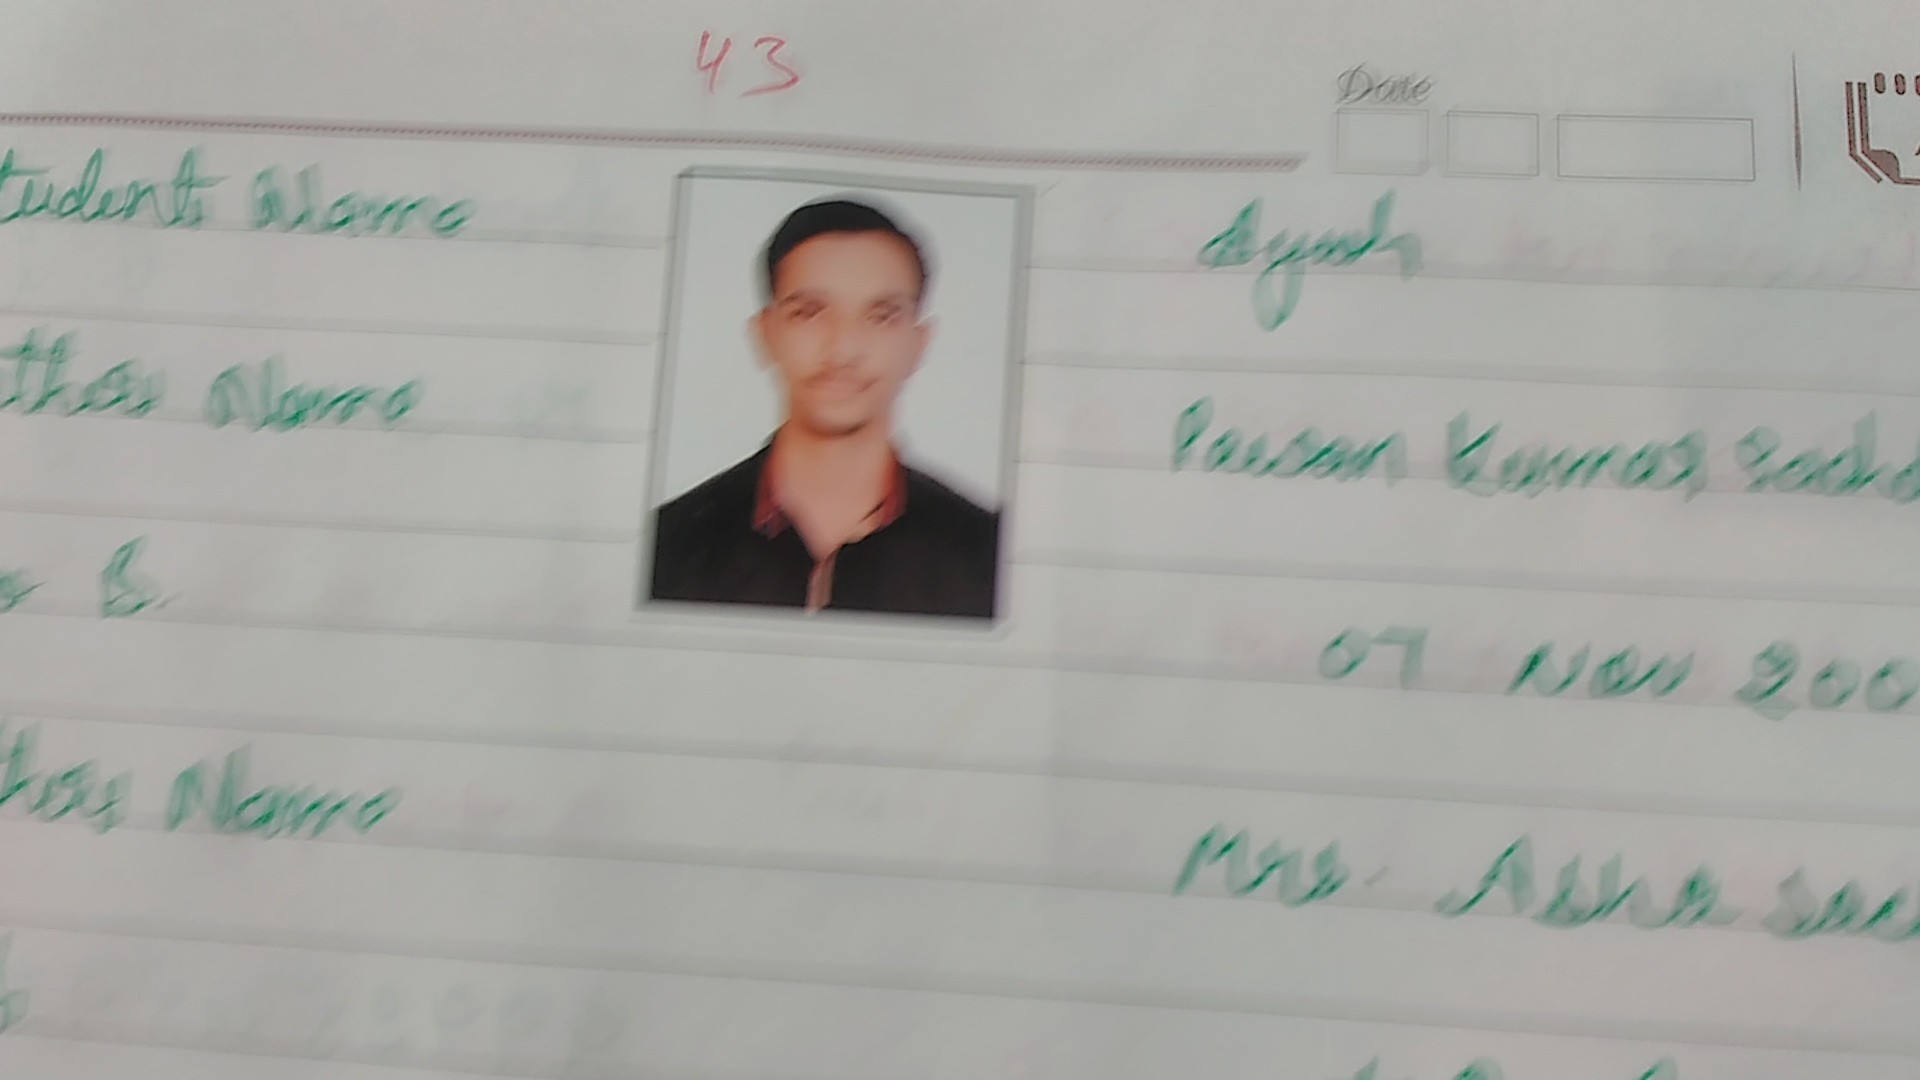 43
Date
tudent Name Ayush
ther Name Pawan Kumar Sachd
o B. 07 Nov 200
ther Name Mrs. Asha Sac